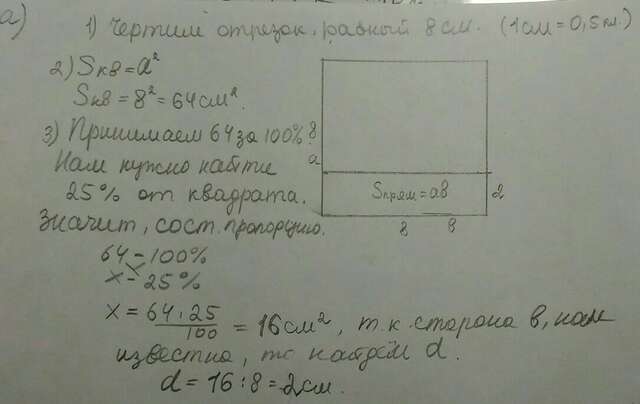 а)
1) Чертим отрезок, равный 8 см. (1 см = 0,5 км.)
2) Sкв = a²
Sкв = 8² = 64 см².
3) Принимаем 64 за 100%.
Нам нужно найти
25% от квадрата.
Значит, сост. пропорцию.
64 - 100%
x - 25%
x = 64 · 25 / 100 = 16 см², т.к. сторона в, нам
известна, то найдём d.
d = 16 : 8 = 2 см.
8
a
Sпрям = ab
2
8 в